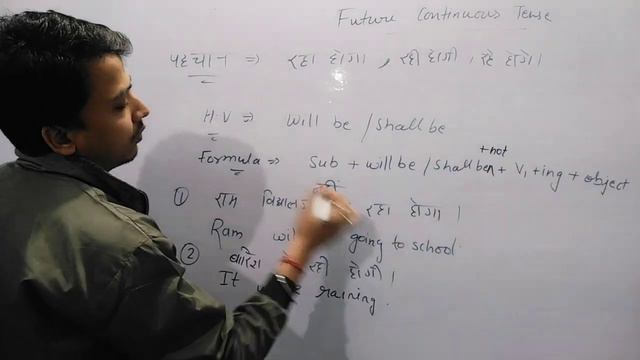 Future Continuous Tense
पहचान ⇒ रहा होगा, रही होगी, रहे होंगे।
H.V ⇒ will be / shall be
Formula ⇒ Sub + will be / shall be + not ∧ + V₁ + ing + object
नहीं
① राम रहा होगा।
Ram going to school.
② बारिश रही होगी।
It raining.